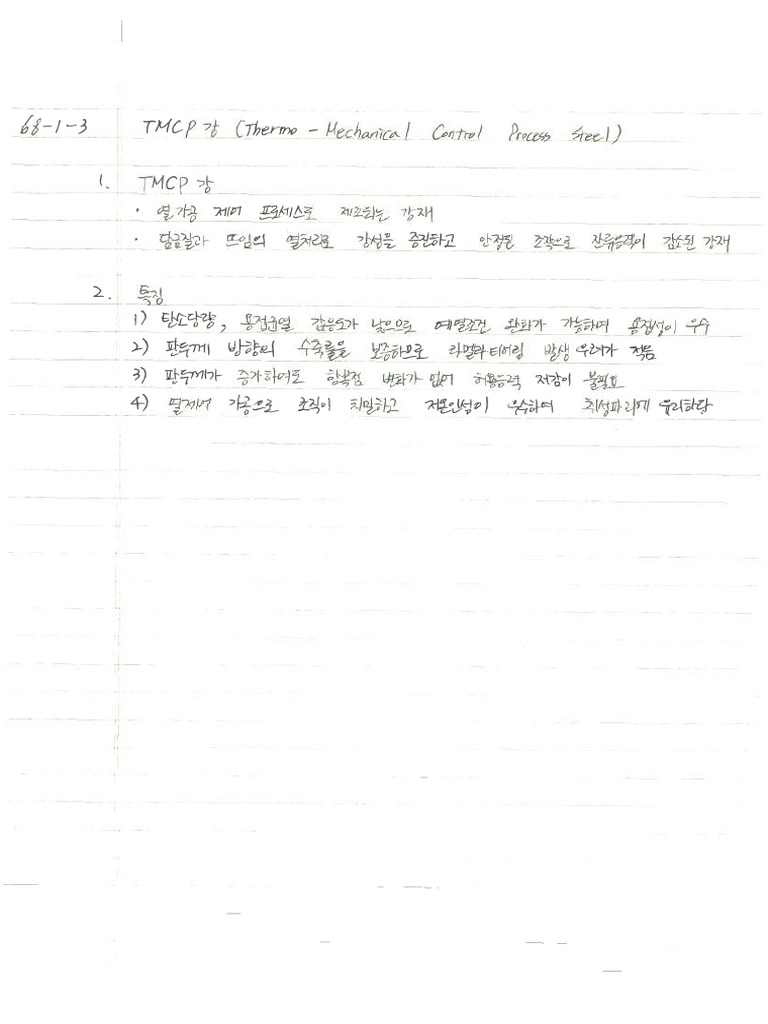 68-1-3 TMCP 강 (Thermo - Mechanical Control Process Steel)
1. TMCP 강
· 열가공 제어 프로세스로 제조되는 강재
· 담금질과 뜨임의 열처리로 강성을 증진하고 안정된 조직으로 잔류응력이 감소된 강재
2. 특징
1) 탄소당량, 용접균열 감응도가 낮으므로 예열조건 완화가 가능하며 용접성이 우수
2) 판두께 방향의 수축률을 보증하므로 라멜라티어링 발생 우려가 적음
3) 판두께가 증가하여도 항복점 변화가 없어 허용응력 저감이 불필요
4) 열제어 가공으로 조직이 치밀하고 저온인성이 우수하며 취성파괴에 유리하담